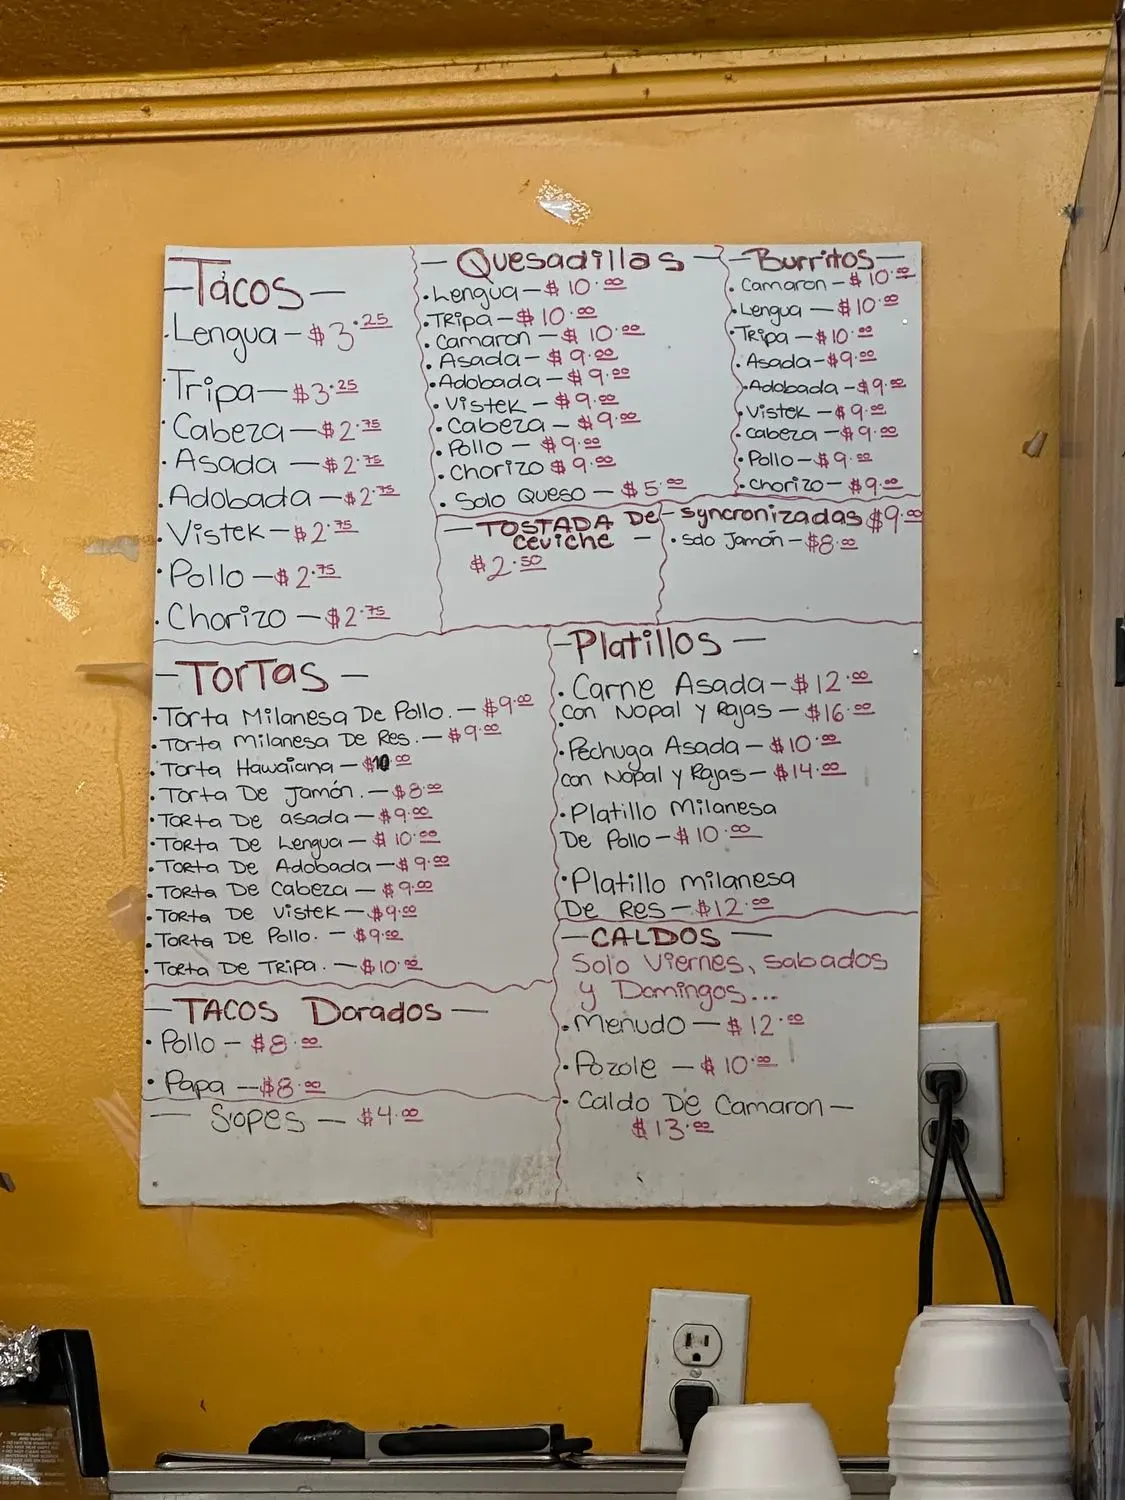 -Tacos-
·Lengua-$3.25
·Tripa-$3.25
·Cabeza-$2.75
·Asada-$2.75
·Adobada-$2.75
·Vistek-$2.75
·Pollo-$2.75
·Chorizo-$2.75
-Quesadillas-
·Lengua-$10.00
·Tripa-$10.00
·Camaron-$10.00
·Asada-$9.00
·Adobada-$9.00
·Vistek-$9.00
·Cabeza-$9.00
·Pollo-$9.00
·Chorizo $9.00
·Solo Queso-$5.00
-Burritos-
·Camaron-$10.00
·Lengua-$10.00
·Tripa-$10.00
·Asada-$9.00
·Adobada-$9.00
·Vistek-$9.00
·cabeza-$9.00
·Pollo-$9.00
·Chorizo-$9.00
-TOSTADA De
Ceviche-
$2.50
-Syncronizadas $9.00
·Solo Jamón-$8.00
-TorTas-
·Torta Milanesa De Pollo.-$9.00
·Torta Milanesa De Res.-$9.00
·Torta Hawaiana-$10.00
·Torta De Jamón.-$8.00
·Torta De asada-$9.00
·Torta De Lengua-$10.00
·Torta De Adobada-$9.00
·Torta De Cabeza-$9.00
·Torta De Vistek-$9.00
·Torta De Pollo.-$9.00
·Torta De Tripa.-$10.00
-Platillos-
·Carne Asada-$12.00
con Nopal y Rajas-$16.00
·Pechuga Asada-$10.00
con Nopal y Rajas-$14.00
·Platillo Milanesa
De Pollo-$10.00
·Platillo milanesa
De Res-$12.00
-TACOS Dorados-
·Pollo-$8.00
·Papa-$8.00
-Sopes-$4.00
-CALDOS-
Solo Viernes, sabados
y Domingos...
·Menudo-$12.00
·Pozole-$10.00
·Caldo De Camaron-
$13.00